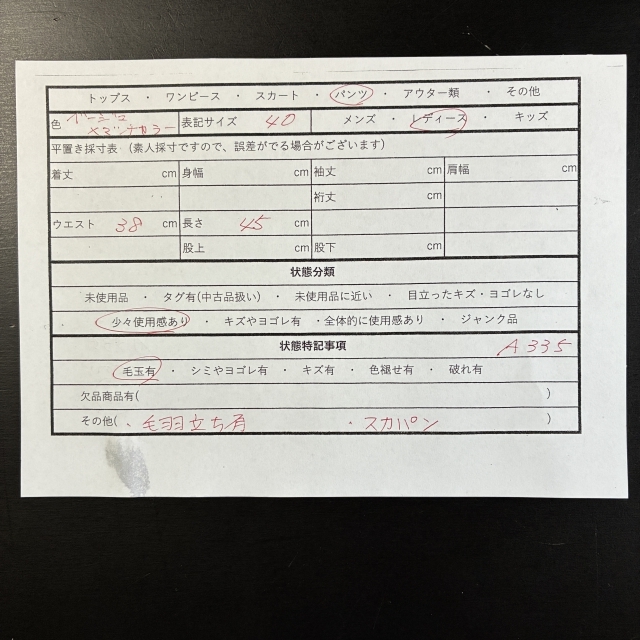 トップス ・ ワンピース ・ スカート ・ パンツ ・ アウター類 ・ その他
色 ベージュ 表記サイズ 40 メンズ ・ レディース ・ キッズ
平置き採寸表 (素人採寸ですので、誤差がでる場合がございます)
着丈 cm 身幅 cm 袖丈 cm 肩幅 cm
裄丈 cm
ウエスト 38 cm 長さ 45 cm
股上 cm 股下 cm
状態分類
未使用品 ・ タグ有(中古品扱い) ・ 未使用品に近い ・ 目立ったキズ・ヨゴレなし
少々使用感あり ・ キズやヨゴレ有 ・全体的に使用感あり ・ ジャンク品
状態特記事項 A335
毛玉有 ・ シミやヨゴレ有 ・ キズ有 ・ 色褪せ有 ・ 破れ有
欠品商品有( )
その他( 、毛羽立ち有 ・スカパン )